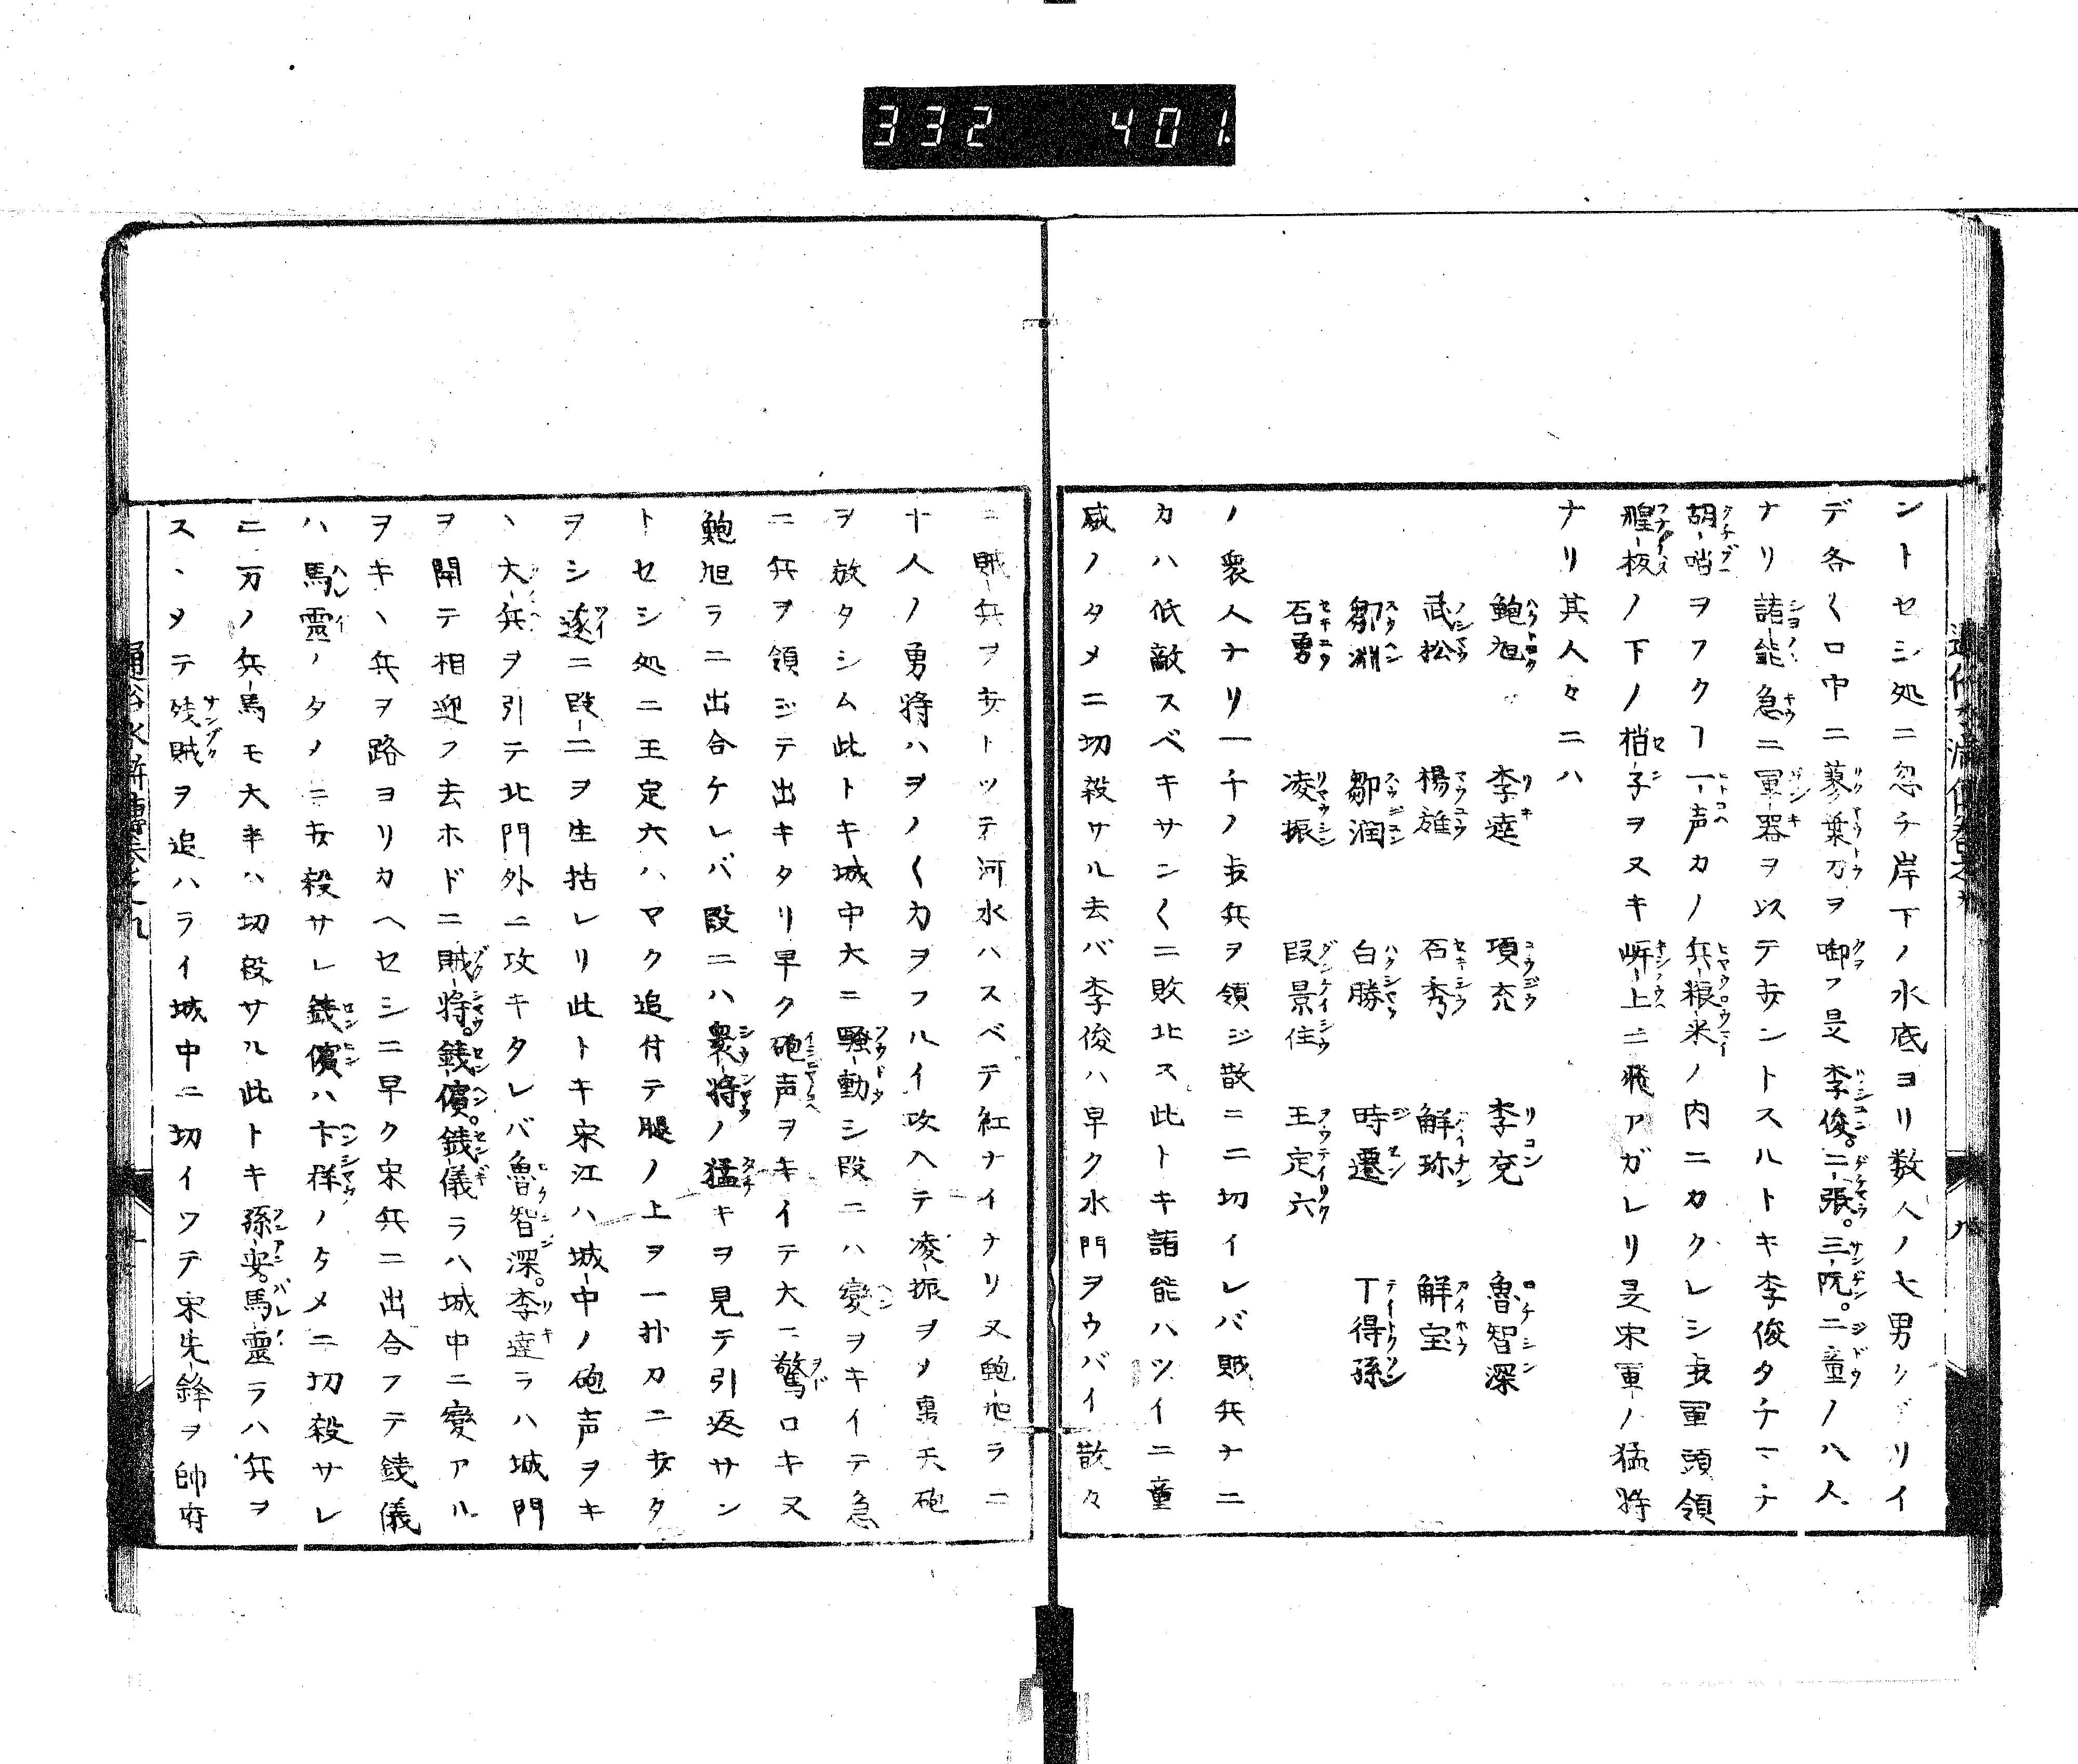 332 401
ントセシ処ニ忽チ岸下ノ水底ヨリ数人ノ大男クヾリイ
デ各〱口中ニ蓼葉刀ヲ啣フ是李俊。二張。三阮。二童ノ八人
ナリ諸能急ニ軍器ヲ以テ戔ントスルトキ李俊タチマチ
胡哨ヲフクヿ一声カノ兵粮米ノ内ニカクレシ歩軍頭領
艎板ノ下ノ梢子ヲヌキ岸上ニ飛アガレリ是宋軍ノ猛将
ナリ其人々ニハ
鮑旭 李逵 項充 李兗 魯智深
武松 楊雄 石秀 解珍 解宝
鄒淵 鄒潤 白勝 時遷 丁得孫
石勇 凌振 段景住 王定六
ノ衆人ナリ一千ノ歩兵ヲ領ジ散ニ二切イレバ賊兵ナニ
カハ低敵スベキサン〱ニ敗北ス此トキ諸能ハツイニ童
威ノタメニ切殺サル去バ李俊ハ早ク水門ヲウバイ散々
ニ賊兵ヲ トツテ河水ハスベテ紅ナイナリ又鮑旭ラニ
十人ノ勇将ハヲノ〱力ヲフルイ攻入テ凌振ヲメ轟天砲
ヲ放タシム此トキ城中大ニ騒動シ段二ハ變ヲキイテ急
ニ兵ヲ領ジテ出キタリ早ク砲声ヲキイテ大ニ驚ロキ又
鮑旭ラニ出合ケレバ段二ハ衆将ノ猛キヲ見テ引返サン
トセシ処ニ王定六ハマク追付テ腿ノ上ヲ一朴刀ニ タ
ヲシ遂ニ段二ヲ生拈レリ此トキ宋江ハ城中ノ砲声ヲキ
ヽ大兵ヲ引テ北門外ニ攻キタレバ魯智深。李逵ラハ城門
ヲ開テ相迎フ去ホドニ賊将。錢儐。錢儀ラハ城中ニ變アル
ヲキヽ兵ヲ路ヨリカヘセシニ早ク宋兵ニ出合フテ錢儀
ハ馬靈ノタメニ 殺サレ錢儐ハ卞祥ノタメニ切殺サレ
二万ノ兵馬モ大半ハ切殺サル此トキ孫安。馬靈ラハ兵ヲ
スヽメテ残賊ヲ追ハライ城中ニ切イツテ宋先鋒ヲ帥府
通俗水滸傳巻之九